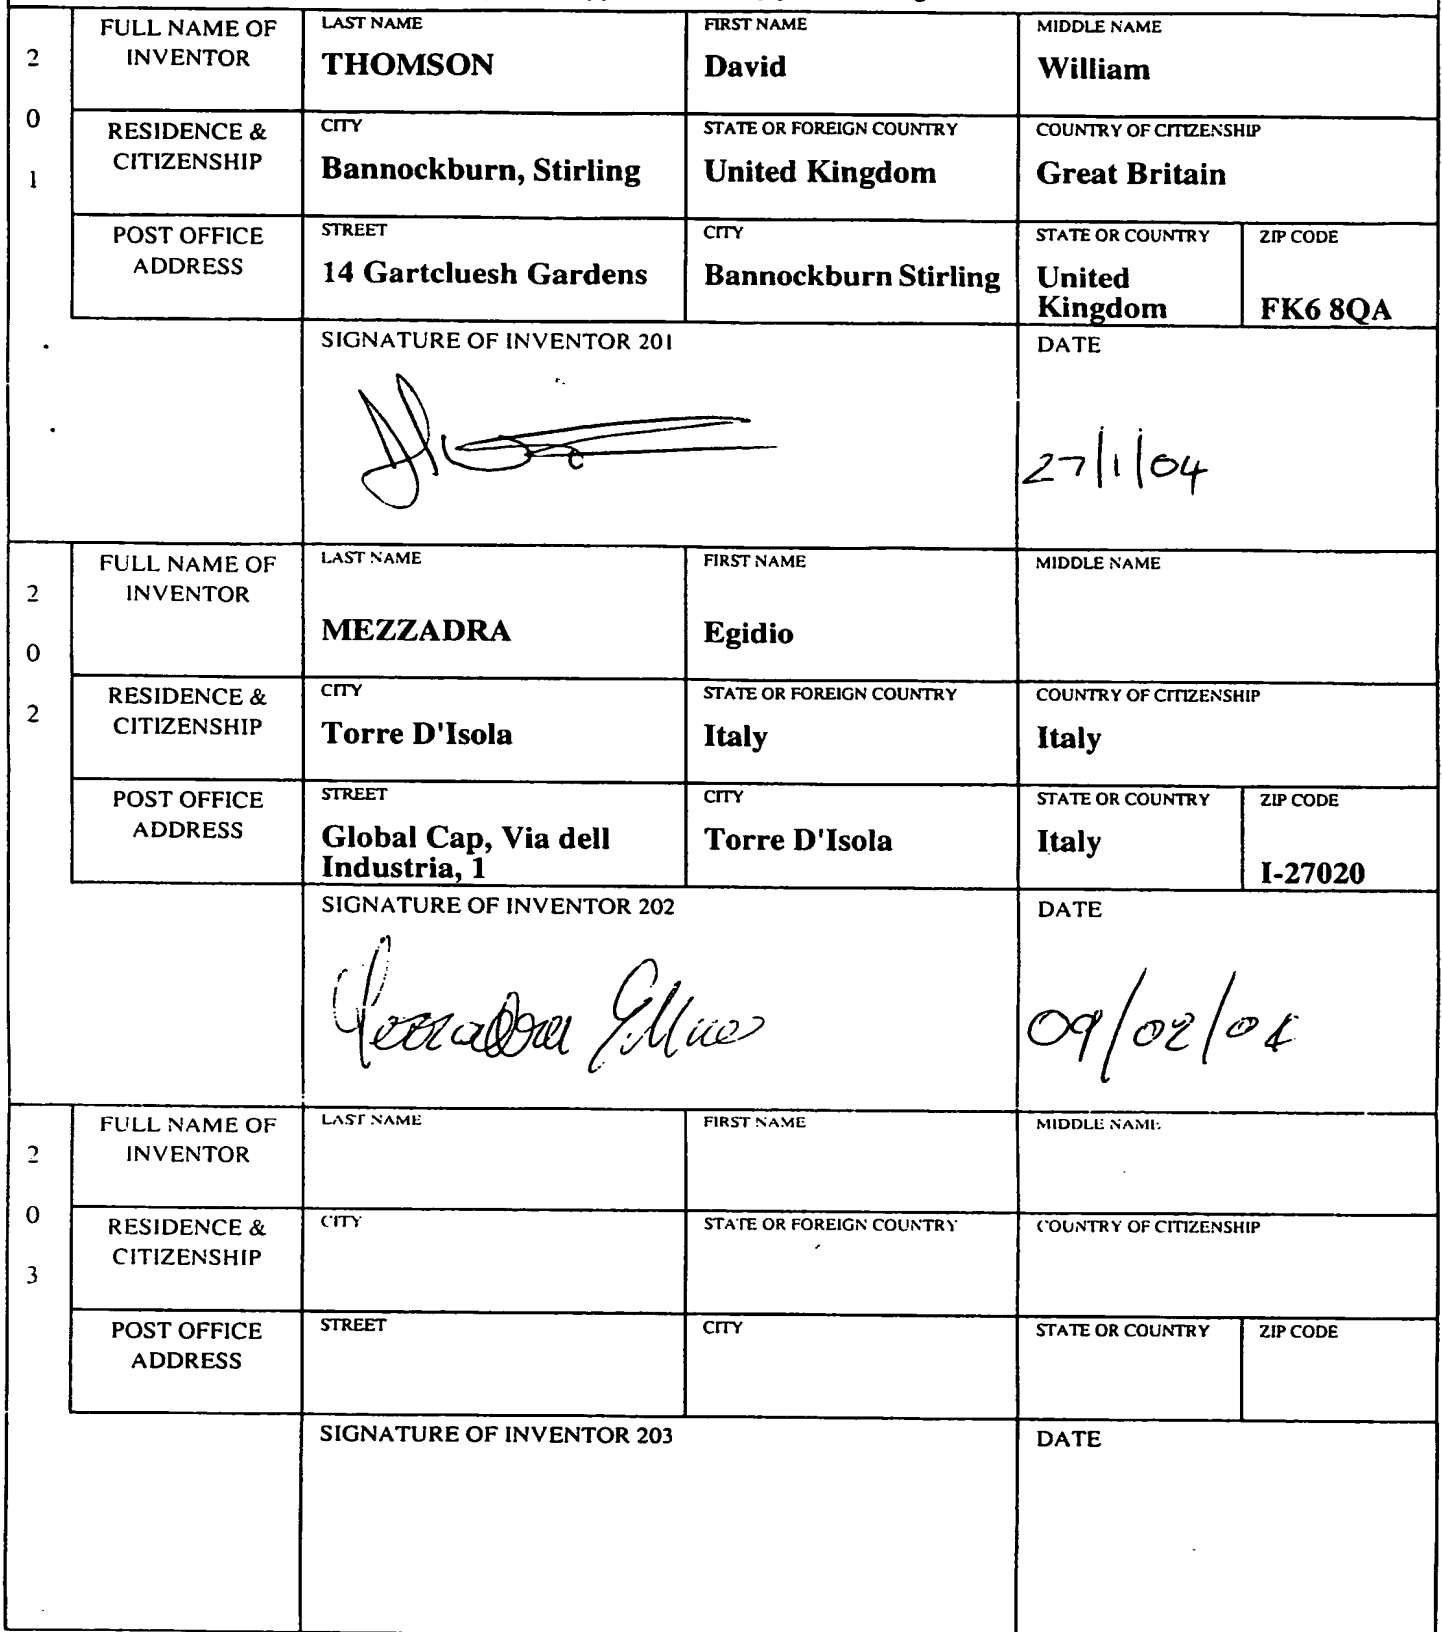 2 0 1
FULL NAME OF INVENTOR
LAST NAME
THOMSON
FIRST NAME
David
MIDDLE NAME
William
RESIDENCE & CITIZENSHIP
CITY
Bannockburn, Stirling
STATE OR FOREIGN COUNTRY
United Kingdom
COUNTRY OF CITIZENSHIP
Great Britain
POST OFFICE ADDRESS
STREET
14 Gartcluesh Gardens
CITY
Bannockburn Stirling
STATE OR COUNTRY
United
Kingdom
ZIP CODE
FK6 8QA
SIGNATURE OF INVENTOR 201
DATE
27/1/04
2 0 2
FULL NAME OF INVENTOR
LAST NAME
MEZZADRA
FIRST NAME
Egidio
MIDDLE NAME
RESIDENCE & CITIZENSHIP
CITY
Torre D'Isola
STATE OR FOREIGN COUNTRY
Italy
COUNTRY OF CITIZENSHIP
Italy
POST OFFICE ADDRESS
STREET
Global Cap, Via dell
Industria, 1
CITY
Torre D'Isola
STATE OR COUNTRY
Italy
ZIP CODE
I-27020
SIGNATURE OF INVENTOR 202
DATE
09/02/04
2 0 3
FULL NAME OF INVENTOR
LAST NAME
FIRST NAME
MIDDLE NAME
RESIDENCE & CITIZENSHIP
CITY
STATE OR FOREIGN COUNTRY
COUNTRY OF CITIZENSHIP
POST OFFICE ADDRESS
STREET
CITY
STATE OR COUNTRY
ZIP CODE
SIGNATURE OF INVENTOR 203
DATE